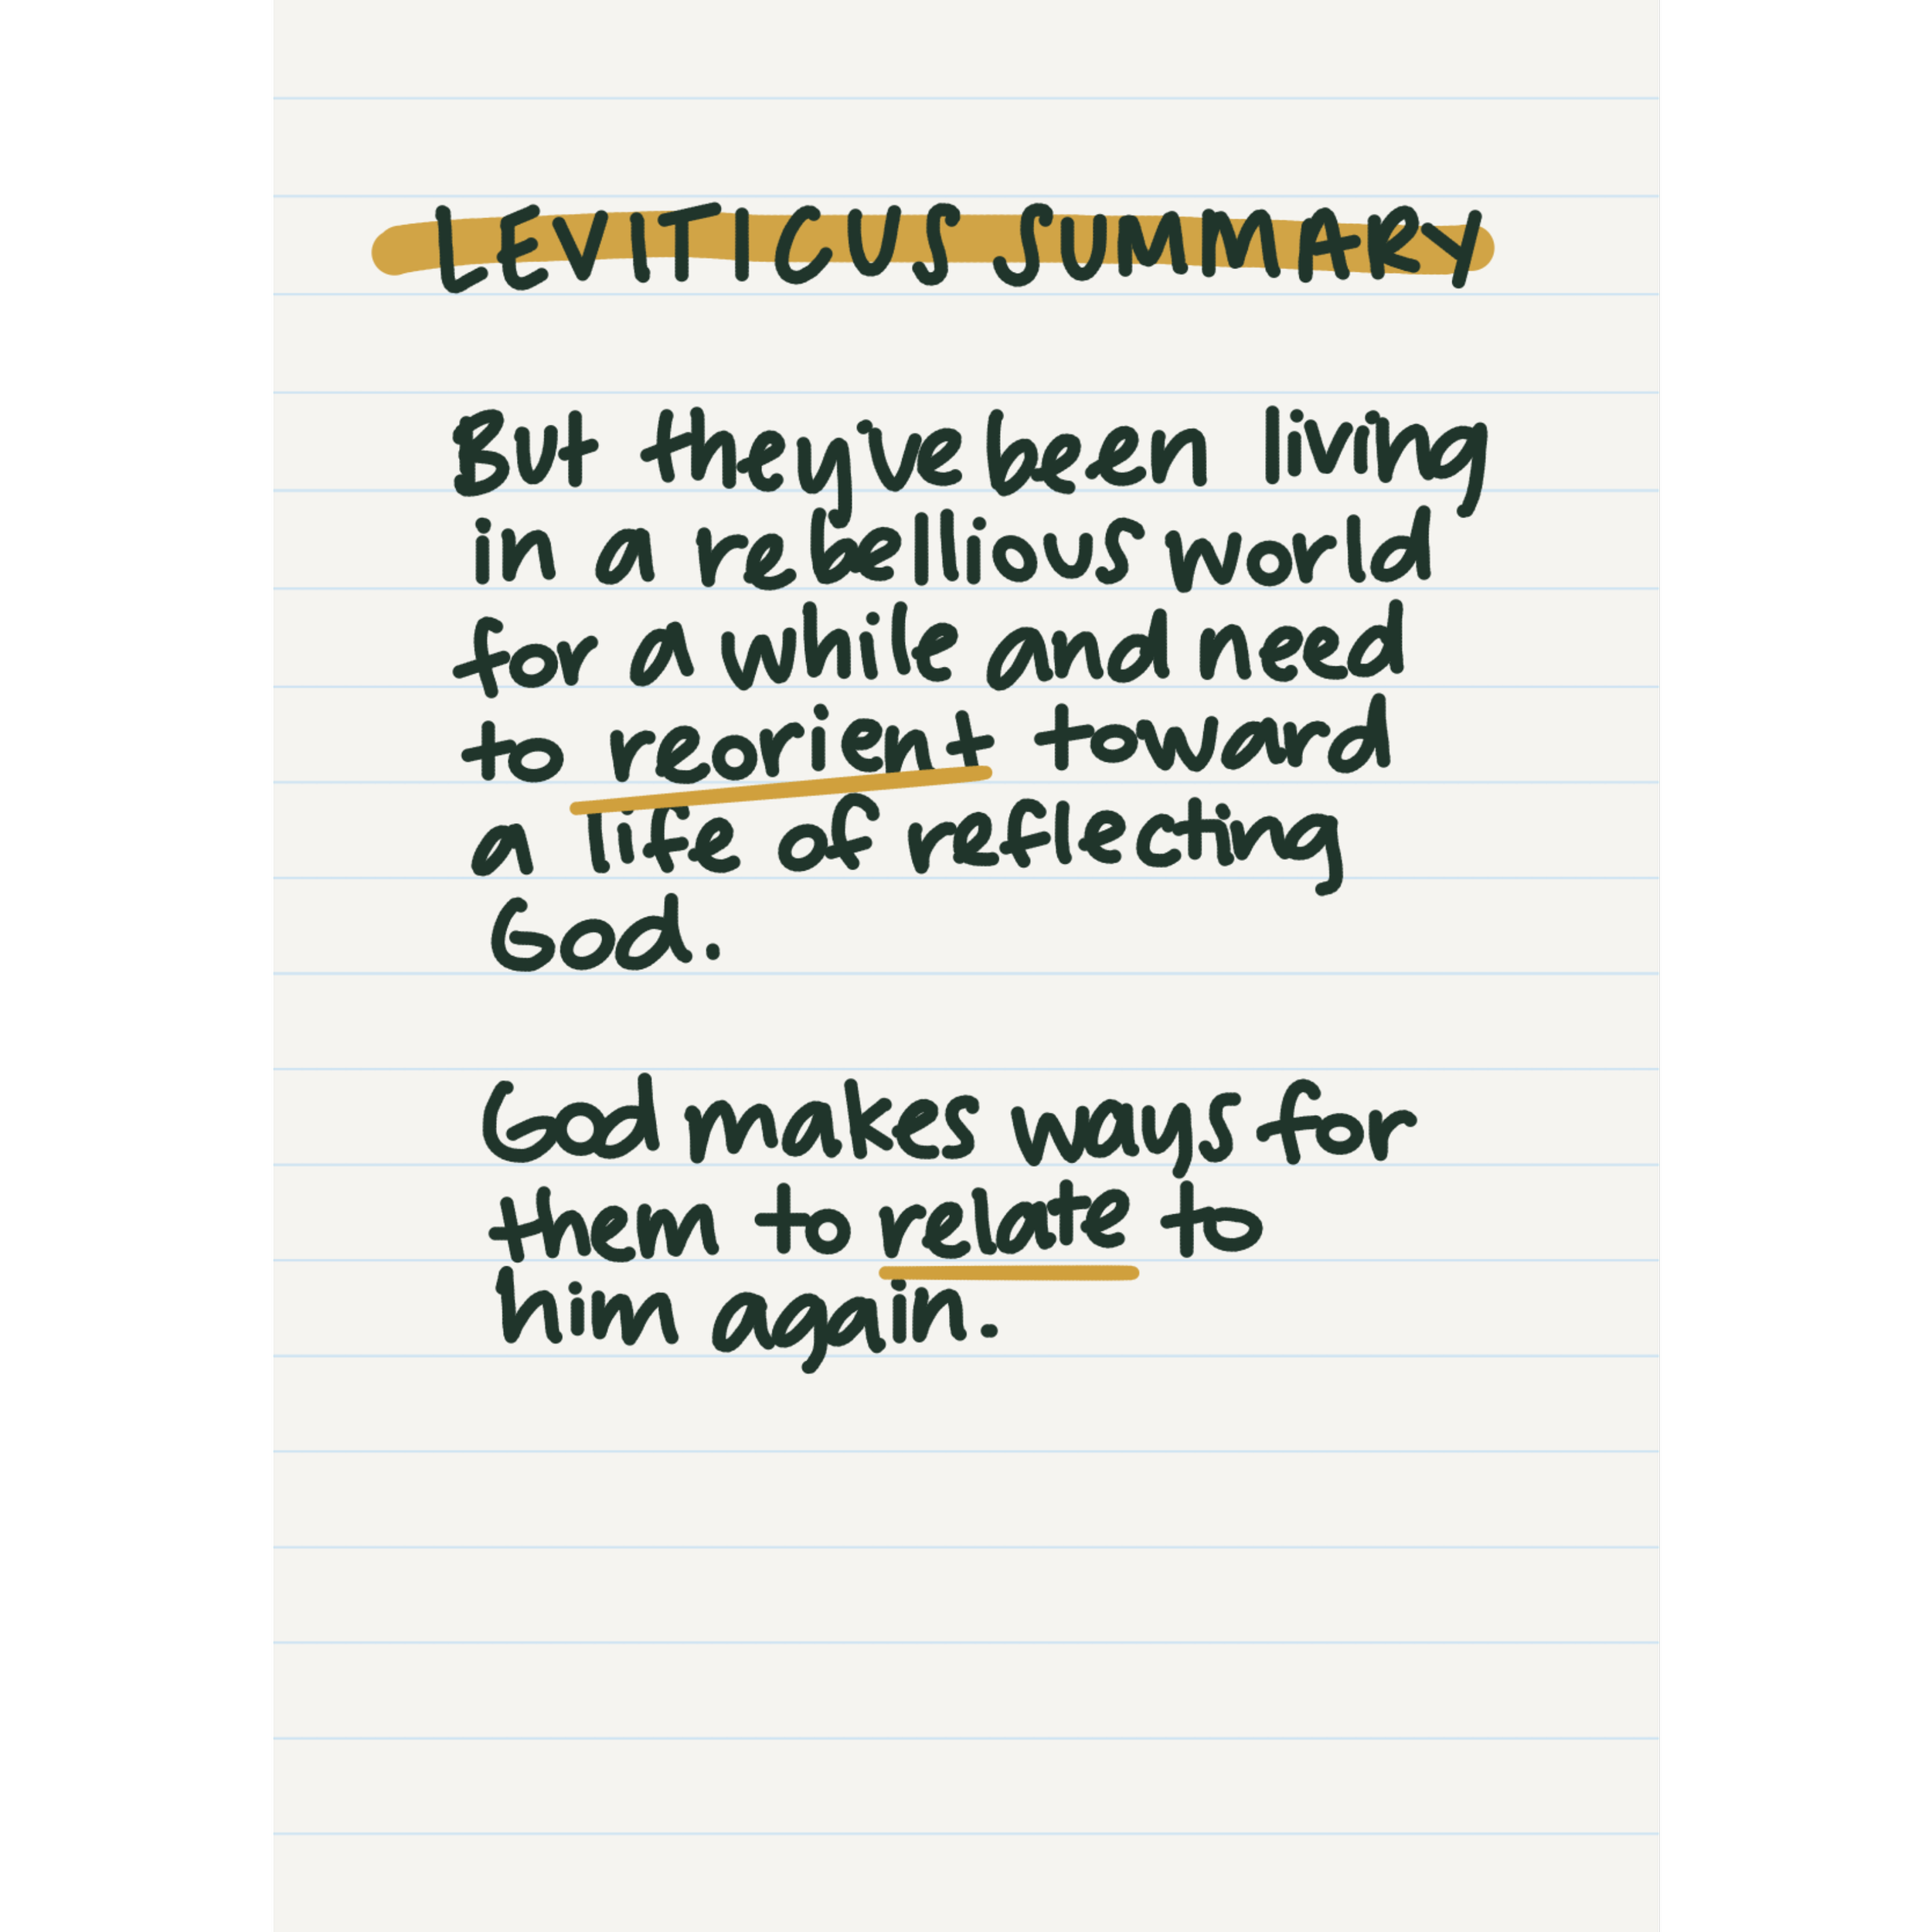 LEVITICUS SUMMARY
But they've been living
in a rebellious world
for a while and need
to reorient toward
a life of reflecting
God.
God makes ways for
them to relate to
him again.